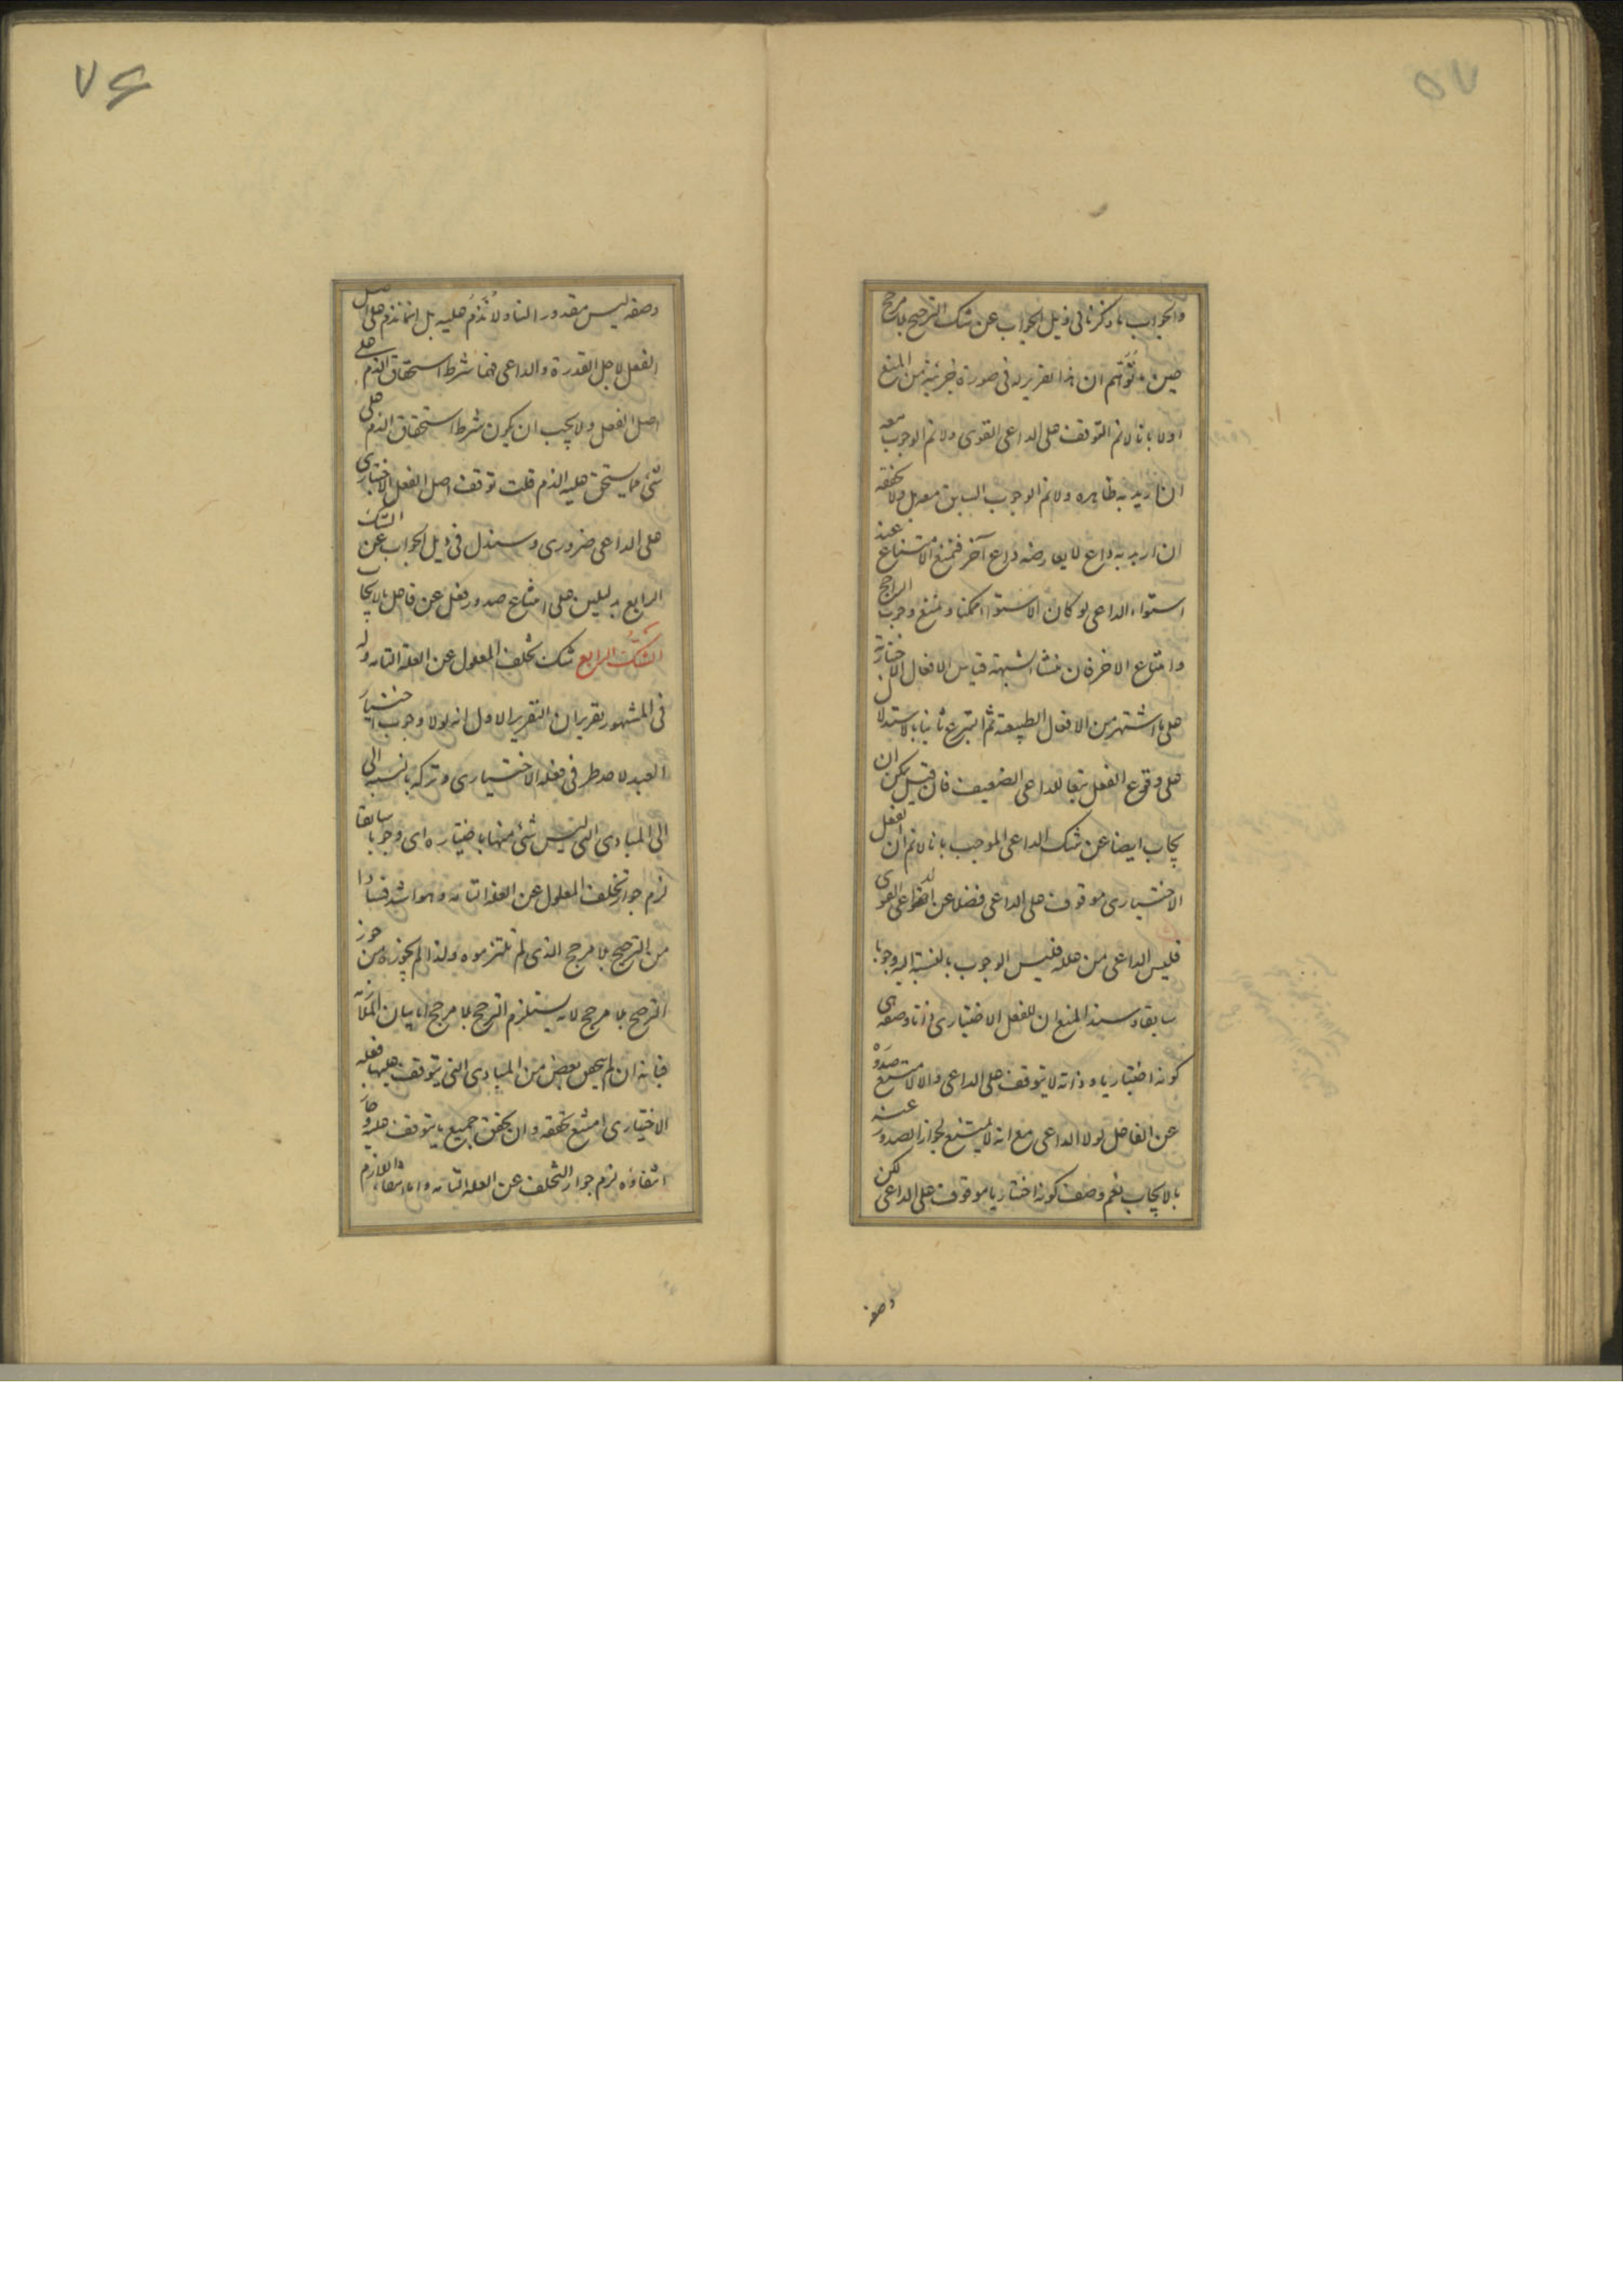 والجواب ما ذكرنا فى ذيل الجواب عن شك الترجيح بلا مرجح
حين توهم ان هذا تقرير له فى صورة جزئية من المنع
اولا بانا لانم التوقف على الداعى القوى ولانم الوجوب معه
ان اريد به ظاهره ولانم الوجوب السابق معه بل ولا تحققه
ان اريد به داع لا يعارضه داع آخر فنمنع الامتناع عند
استواء الداعى لو كان الاستواء ممكنا ونمنع وجوب الراجح
وامتناع الاخر فان منشا شبهته قياس الافعال الاختيارية
على ما اشتهر من الافعال الطبيعة ثم التبرع ثانيا بالاستدلال
على وقوع الفعل تبعا للداعى الضعيف فان قيل يمكن ان
يجاب ايضا عن شك الداعى الموجب بانا لانم ان الفعل
الاختيارى موقوف على الداعى فضلا عن الداعى القوى
فليس الداعى من علله فليس الوجوب بالنسبة اليه وجوبا
سابقا وسند المنع ان للفعل الاختيارى ذاتا وصفة هى
كونه اختياريا وذاته لا يتوقف على الداعى والا لامتنع صدوره
عن الفاعل لولا الداعى مع انه لا يمتنع لجواز الصدور عنه
بالايجاب نعم وصف كونه اختياريا موقوف على الداعى لكن
وصفه
٧٦
وصفه ليس مقدورا لنا ولا نذم عليه بل انما نذم على اصل
الفعل لاجل القدرة والداعى فهما شرط استحقاق الذم على
اصل الفعل ولا يجب ان يكون شرط استحقاق الذم على
شئ مما يستحق عليه الذم قلت توقف اصل الفعل الاختيارى
على الداعى ضرورى وسندل فى ذيل الجواب عن الشك
الرابع بدليلين على امتناع صدور فعل عن فاعل بالايجاب
الشك الرابع شك تخلف المعلول عن العلة التامه وله
فى المشهور تقريران التقرير الاول انه لولا وجوب اختيار
العبد لاحد طرفى فعله الاختيارى وتركه بالنسبه الى
الى المبادى التى ليس شئ منها باختياره اى وجوبا سابقا
لزم جواز تخلف المعلول عن العلة التامه وهو اشد فسادا
من الترجيح بلا مرجح الذى لم تلتزموه ولذا لم يجوزه من جوز
الترجيح بلا مرجح لانه يستلزم الترجح بلا مرجح اما بيان الملازمة
فبانه ان لم يتحقق بعض من المبادى التى يتوقف عليها فعله
الاختيارى امتنع تحققه وان تحقق جميع ما يتوقف عليه وجاز
انتفاؤه لزم جواز التخلف عن العلة التامه واما انتفاء اللازم